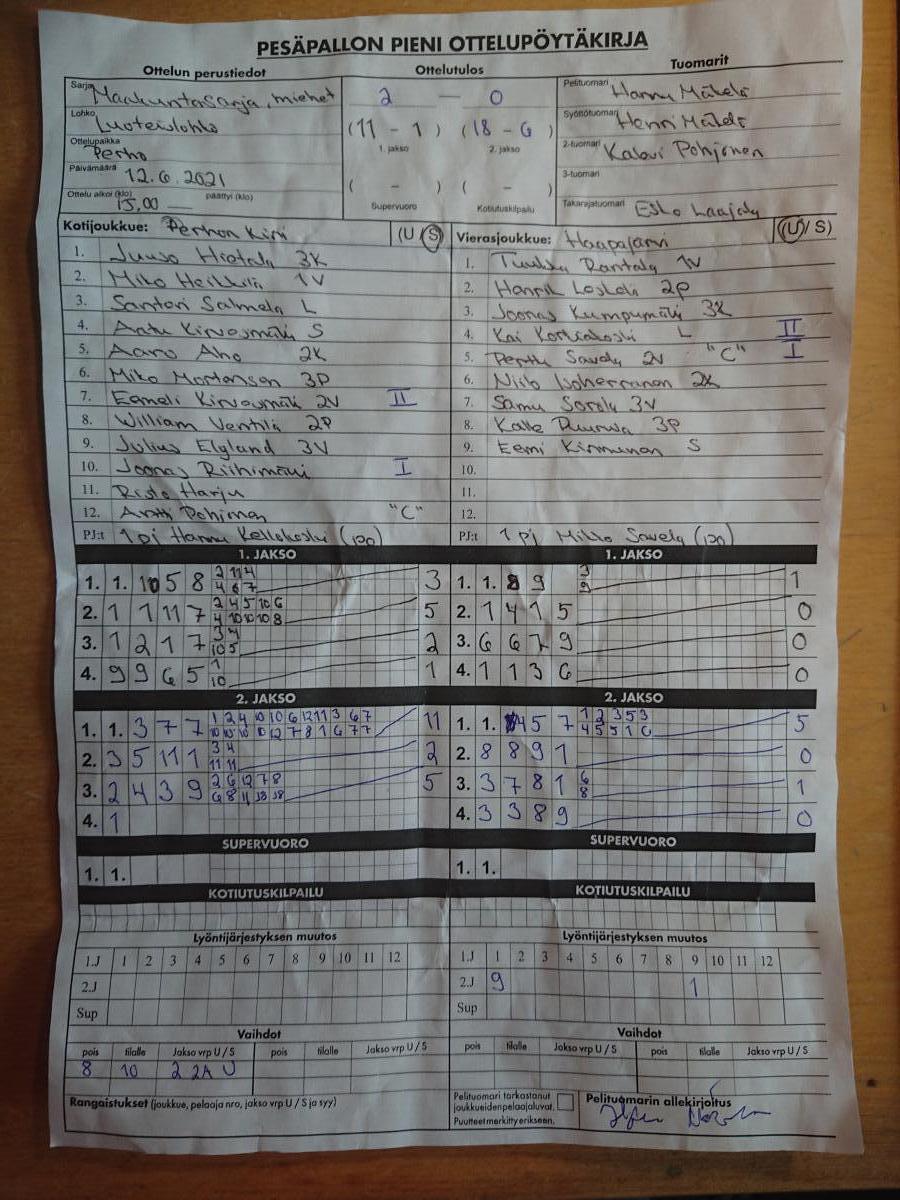 PESÄPALLON PIENI OTTELUPÖYTÄKIRJA
Ottelun perustiedot Ottelutulos Tuomarit
Sarja Maakuntasarja, miehet 2 — 0 Pelituomari Hannu Mäkelä
Lohko Luoteislohko (11 - 1) (18 - 6) Syöttötuomari Henri Mäkelä
1. jakso 2. jakso
Ottelupaikka Perho 2-tuomari Kalevi Pohjonen
Päivämäärä 12.6.2021 ( - ) ( - ) 3-tuomari
Ottelu alkoi (klo) 15,00 päättyi (klo) Supervuoro Kotiutuskilpailu Takarajatuomari Esko Laajala
Kotijoukkue: Perhon Kiri (U / S) Vierasjoukkue: Haapajärvi (U / S)
1. Juuso Hietala 3K 1. Tuukka Rantala 1V
2. Miko Heikkilä 1V 2. Henrik Leskelä 2P
3. Santeri Salmela L 3. Joonas Kumpumäki 3K
4. Anttu Kirvesmäki S 4. Kai Korkiakoski L II
5. Aaro Aho 2K 5. Perttu Savela 2V "C" I
6. Miko Mortensen 3P 6. Niilo Isoherranen 2K
7. Eemeli Kirvesmäki 2V II 7. Samu Sorola 3V
8. William Ventilä 2P 8. Kalle 3P
9. Julius Elgland 3V 9. Eemi Kinnunen S
10. Joonas Riihimäki I 10.
11. Risto Harju 11.
12. Antti Pohjonen "C" 12.
PJ:t 1 pj Hannu Kellokoski (120) PJ:t 1 pj Mikko Savela (120)
1. JAKSO 1. JAKSO
2 11 4 3
1. 1. 10 5 8 4 6 7 3 1. 1. 8 9 9 1
2 4 5 10 6
2. 1 1 11 7 4 10 10 10 8 5 2. 1 4 1 5 0
3 4
3. 1 2 1 7 10 5 2 3. 6 6 7 9 0
1
4. 9 9 6 5 10 1 4. 1 1 3 6 0
2. JAKSO 2. JAKSO
1 2 4 10 10 6 12 11 3 6 7 1 2 3 5 3
1. 1. 3 7 7 10 10 10 10 12 7 8 1 6 7 7 11 1. 1. 4 5 7 4 5 5 1 6 5
3 4
2. 3 5 11 1 11 11 2 2. 8 8 9 1 0
2 6 12 7 8 6
3. 2 4 3 9 6 8 11 5 3. 3 7 8 1 8 1
4. 1 4. 3 3 8 9 0
SUPERVUORO SUPERVUORO
1. 1. 1. 1.
KOTIUTUSKILPAILU KOTIUTUSKILPAILU
Lyöntijärjestyksen muutos Lyöntijärjestyksen muutos
1.J 1 2 3 4 5 6 7 8 9 10 11 12 1.J 1 2 3 4 5 6 7 8 9 10 11 12
2.J 2.J 9 1
Sup Sup
Vaihdot Vaihdot
pois tilalle Jakso vrp U / S pois tilalle Jakso vrp U / S pois tilalle Jakso vrp U / S pois tilalle Jakso vrp U / S
8 10 2 2A U
Rangaistukset (joukkue, pelaaja nro, jakso vrp U / S ja syy) Pelituomari tarkastanut Pelituomarin allekirjoitus
joukkueiden pelaajaluvat.
Puutteet merkitty erikseen.